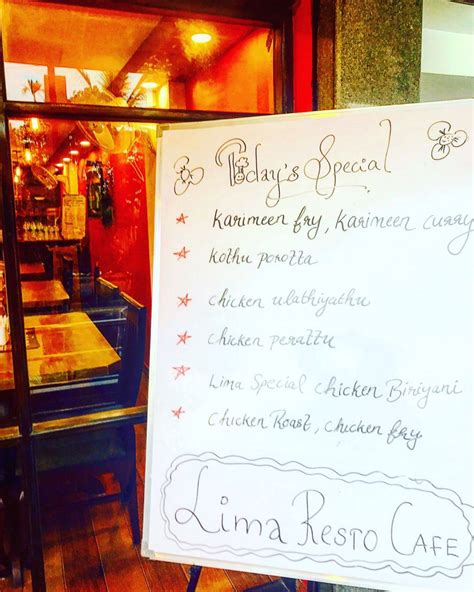 Today's Special
Karimeen fry, Karimeen curry
Kothu porotta
chicken ulathiyathu
chicken perattu
Lima Special chicken Biriyani
Chicken Roast, chicken fry
Lima Resto Cafe